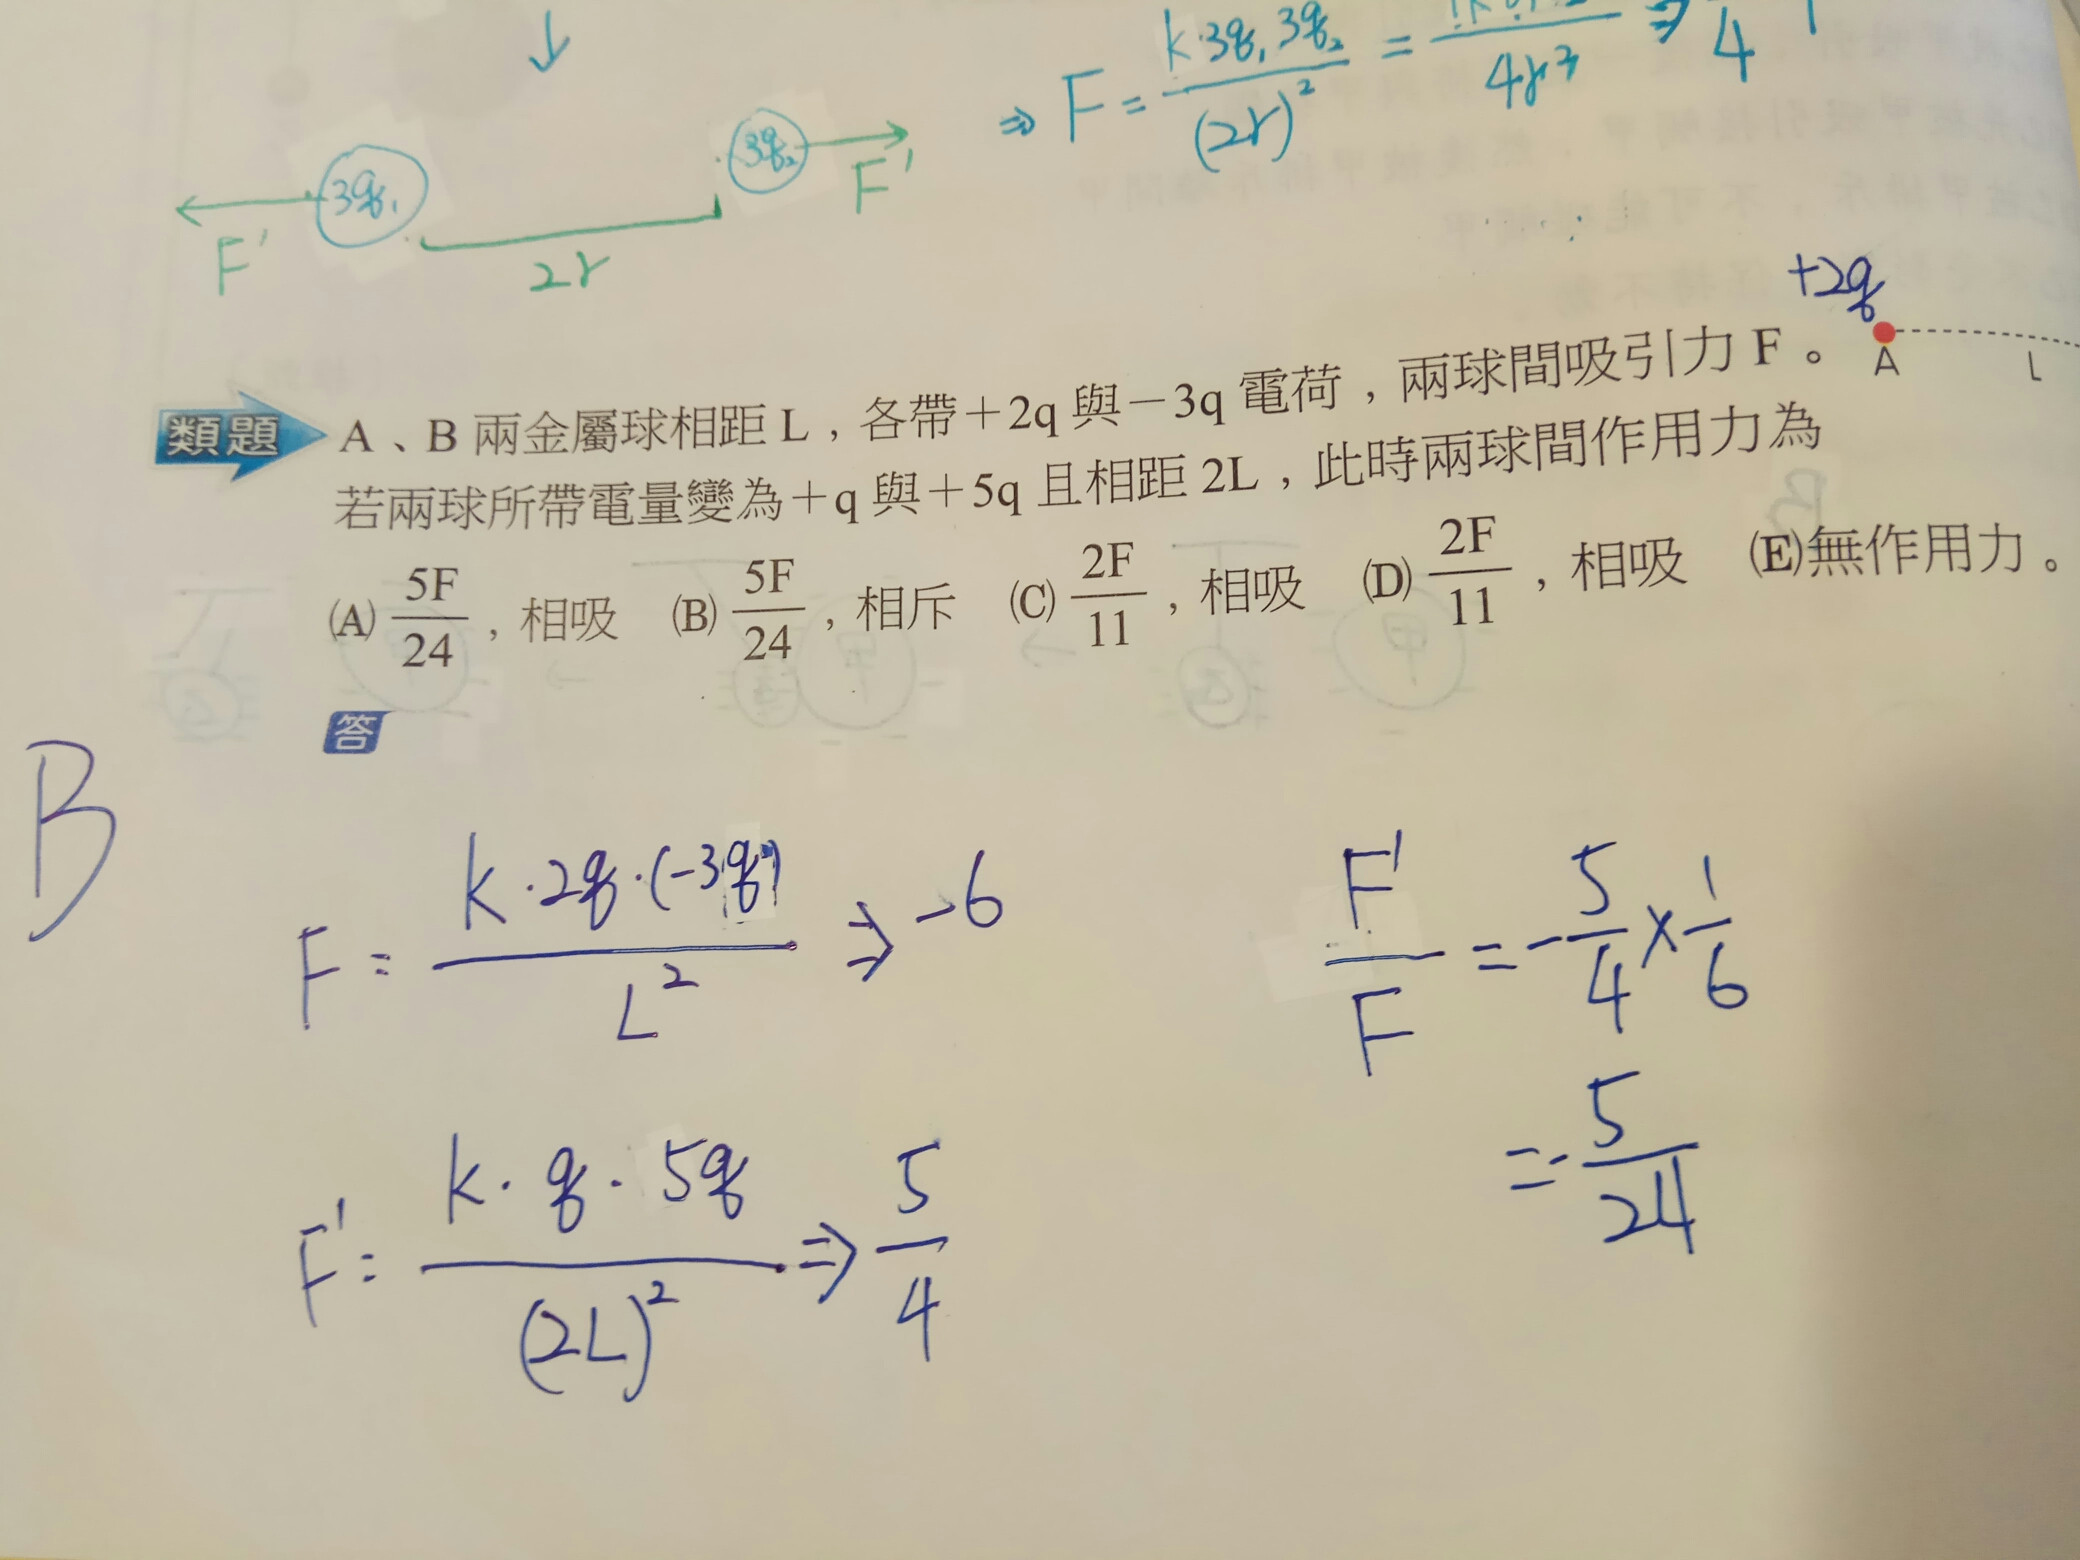 F = k·3q₁3q₂ / (2r)² = / 4r² ⇒ / 4
3q₁
3q₂
F'
F'
2r
+2q
A
L
類題
A、B 兩金屬球相距 L，各帶＋2q 與－3q 電荷，兩球間吸引力 F。
若兩球所帶電量變為＋q 與＋5q 且相距 2L，此時兩球間作用力為
(A) 5F/24，相吸 (B) 5F/24，相斥 (C) 2F/11，相吸 (D) 2F/11，相吸 (E)無作用力。
答
B
F = k·2q·(-3q) / L² ⇒ -6
F'/F = -5/4 × 1/6
= -5/24
F' = k·q·5q / (2L)² ⇒ 5/4